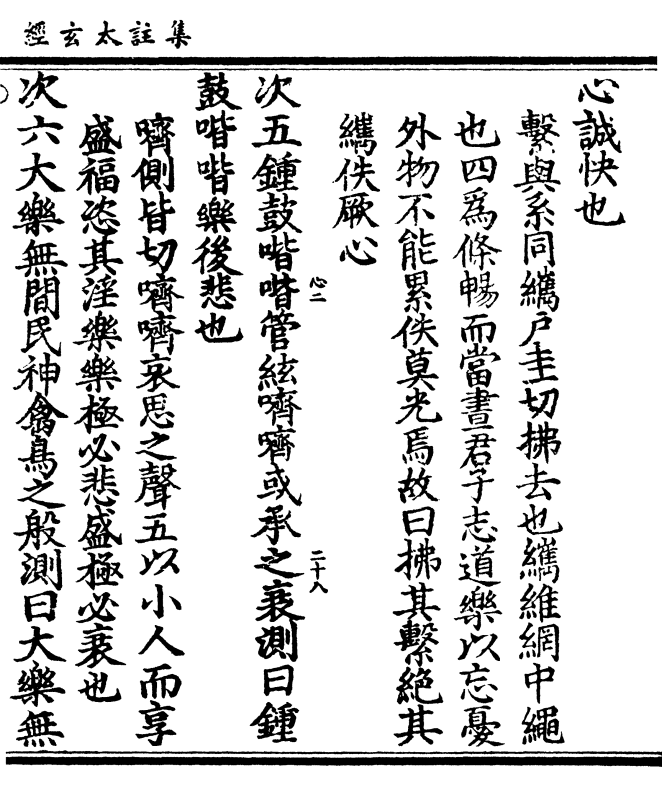 集註太玄經
心誠快也
繫與系同纗戶圭切拂去也纗維網中繩
也四爲條暢而當晝君子志道樂以忘憂
外物不能累佚莫光焉故曰拂其繫絶其
纗佚厥心
心二
二十八
次五鍾鼓喈喈管絃嚌嚌或承之衰測曰鍾
鼓喈喈樂後悲也
嚌側皆切嚌嚌哀思之聲五以小人而享
盛福恣其淫樂樂極必悲盛極必衰也
次六大樂無間民神禽鳥之般測曰大樂無